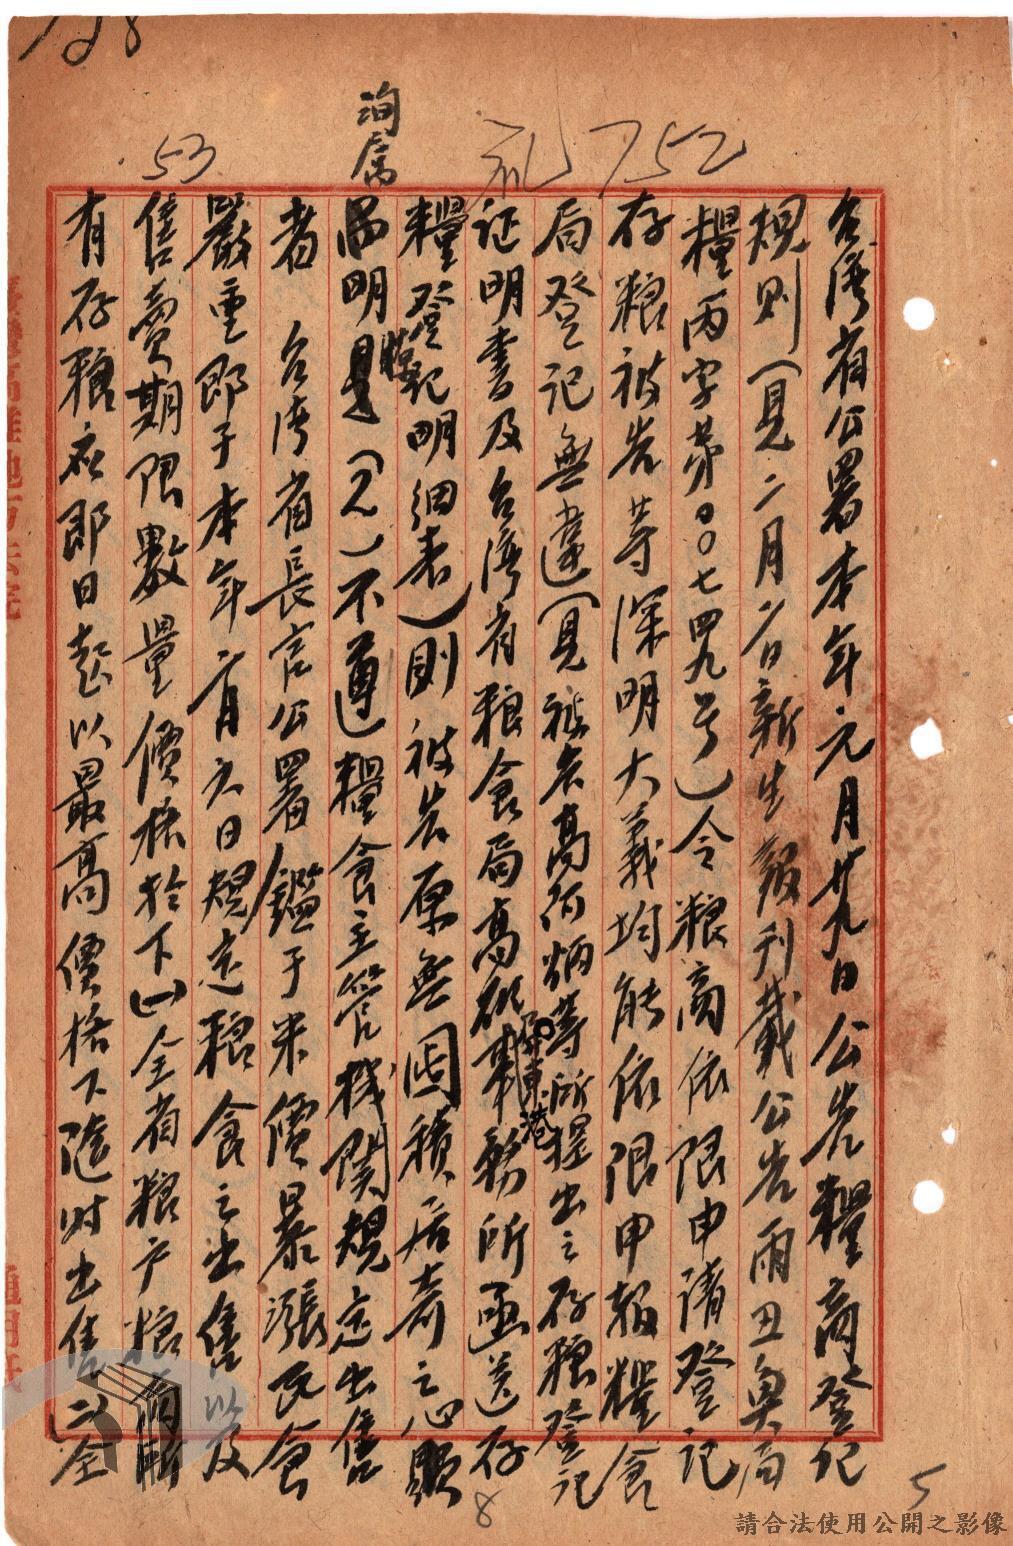 128
53
釓752
洵屬
台灣省公署本年元月廿九日公告糧商登記
規則（見二月六日新生報刊載公告雨丑奠局
糧丙字第００七四九号）令粮商依限申請登記
存粮被告等深明大義均能依限申報糧食
局登記無違（見被告高炳等所提出之存糧登記
証明書及台湾省粮食局高雄事務所函送存
屏東港
糧登記明細表）則被告原無囤積居奇之心顯
而明矣（２）不遵糧食主管機関規定出售
者　台湾省長官公署鑑于米價暴漲民食
嚴重即于本年二月六日規定糧食之出售以及
售賣期限數量價格於下(一)全省粮户粮商所
有存糧应即日起以最高價格下随时出售(二)全
8
5
請合法使用公開之影像